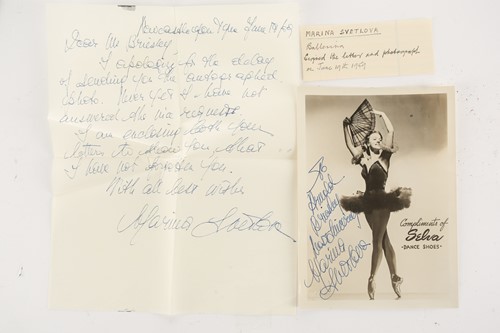 Newcastle upon Tyne June 19/69
Dear Mr Brinsley
I apology for the delay
of sending you the autographed
photo. Never yet I have not
answered the nice request.
I am enclosing both your
letters to show you that
I have not forgotten you.
With all best wishes
Marina Svetlova
MARINA SVETLOVA
Ballerina.
Signed the letter and photograph
on June 19th 1969
To
Brinsley
Marina
Svetlova
Compliments of
Selva
-DANCE SHOES-